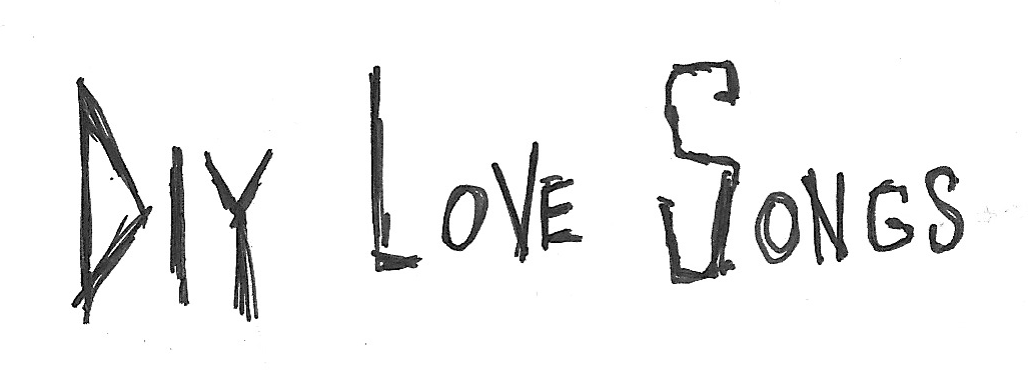 DIY LOVE SONGS